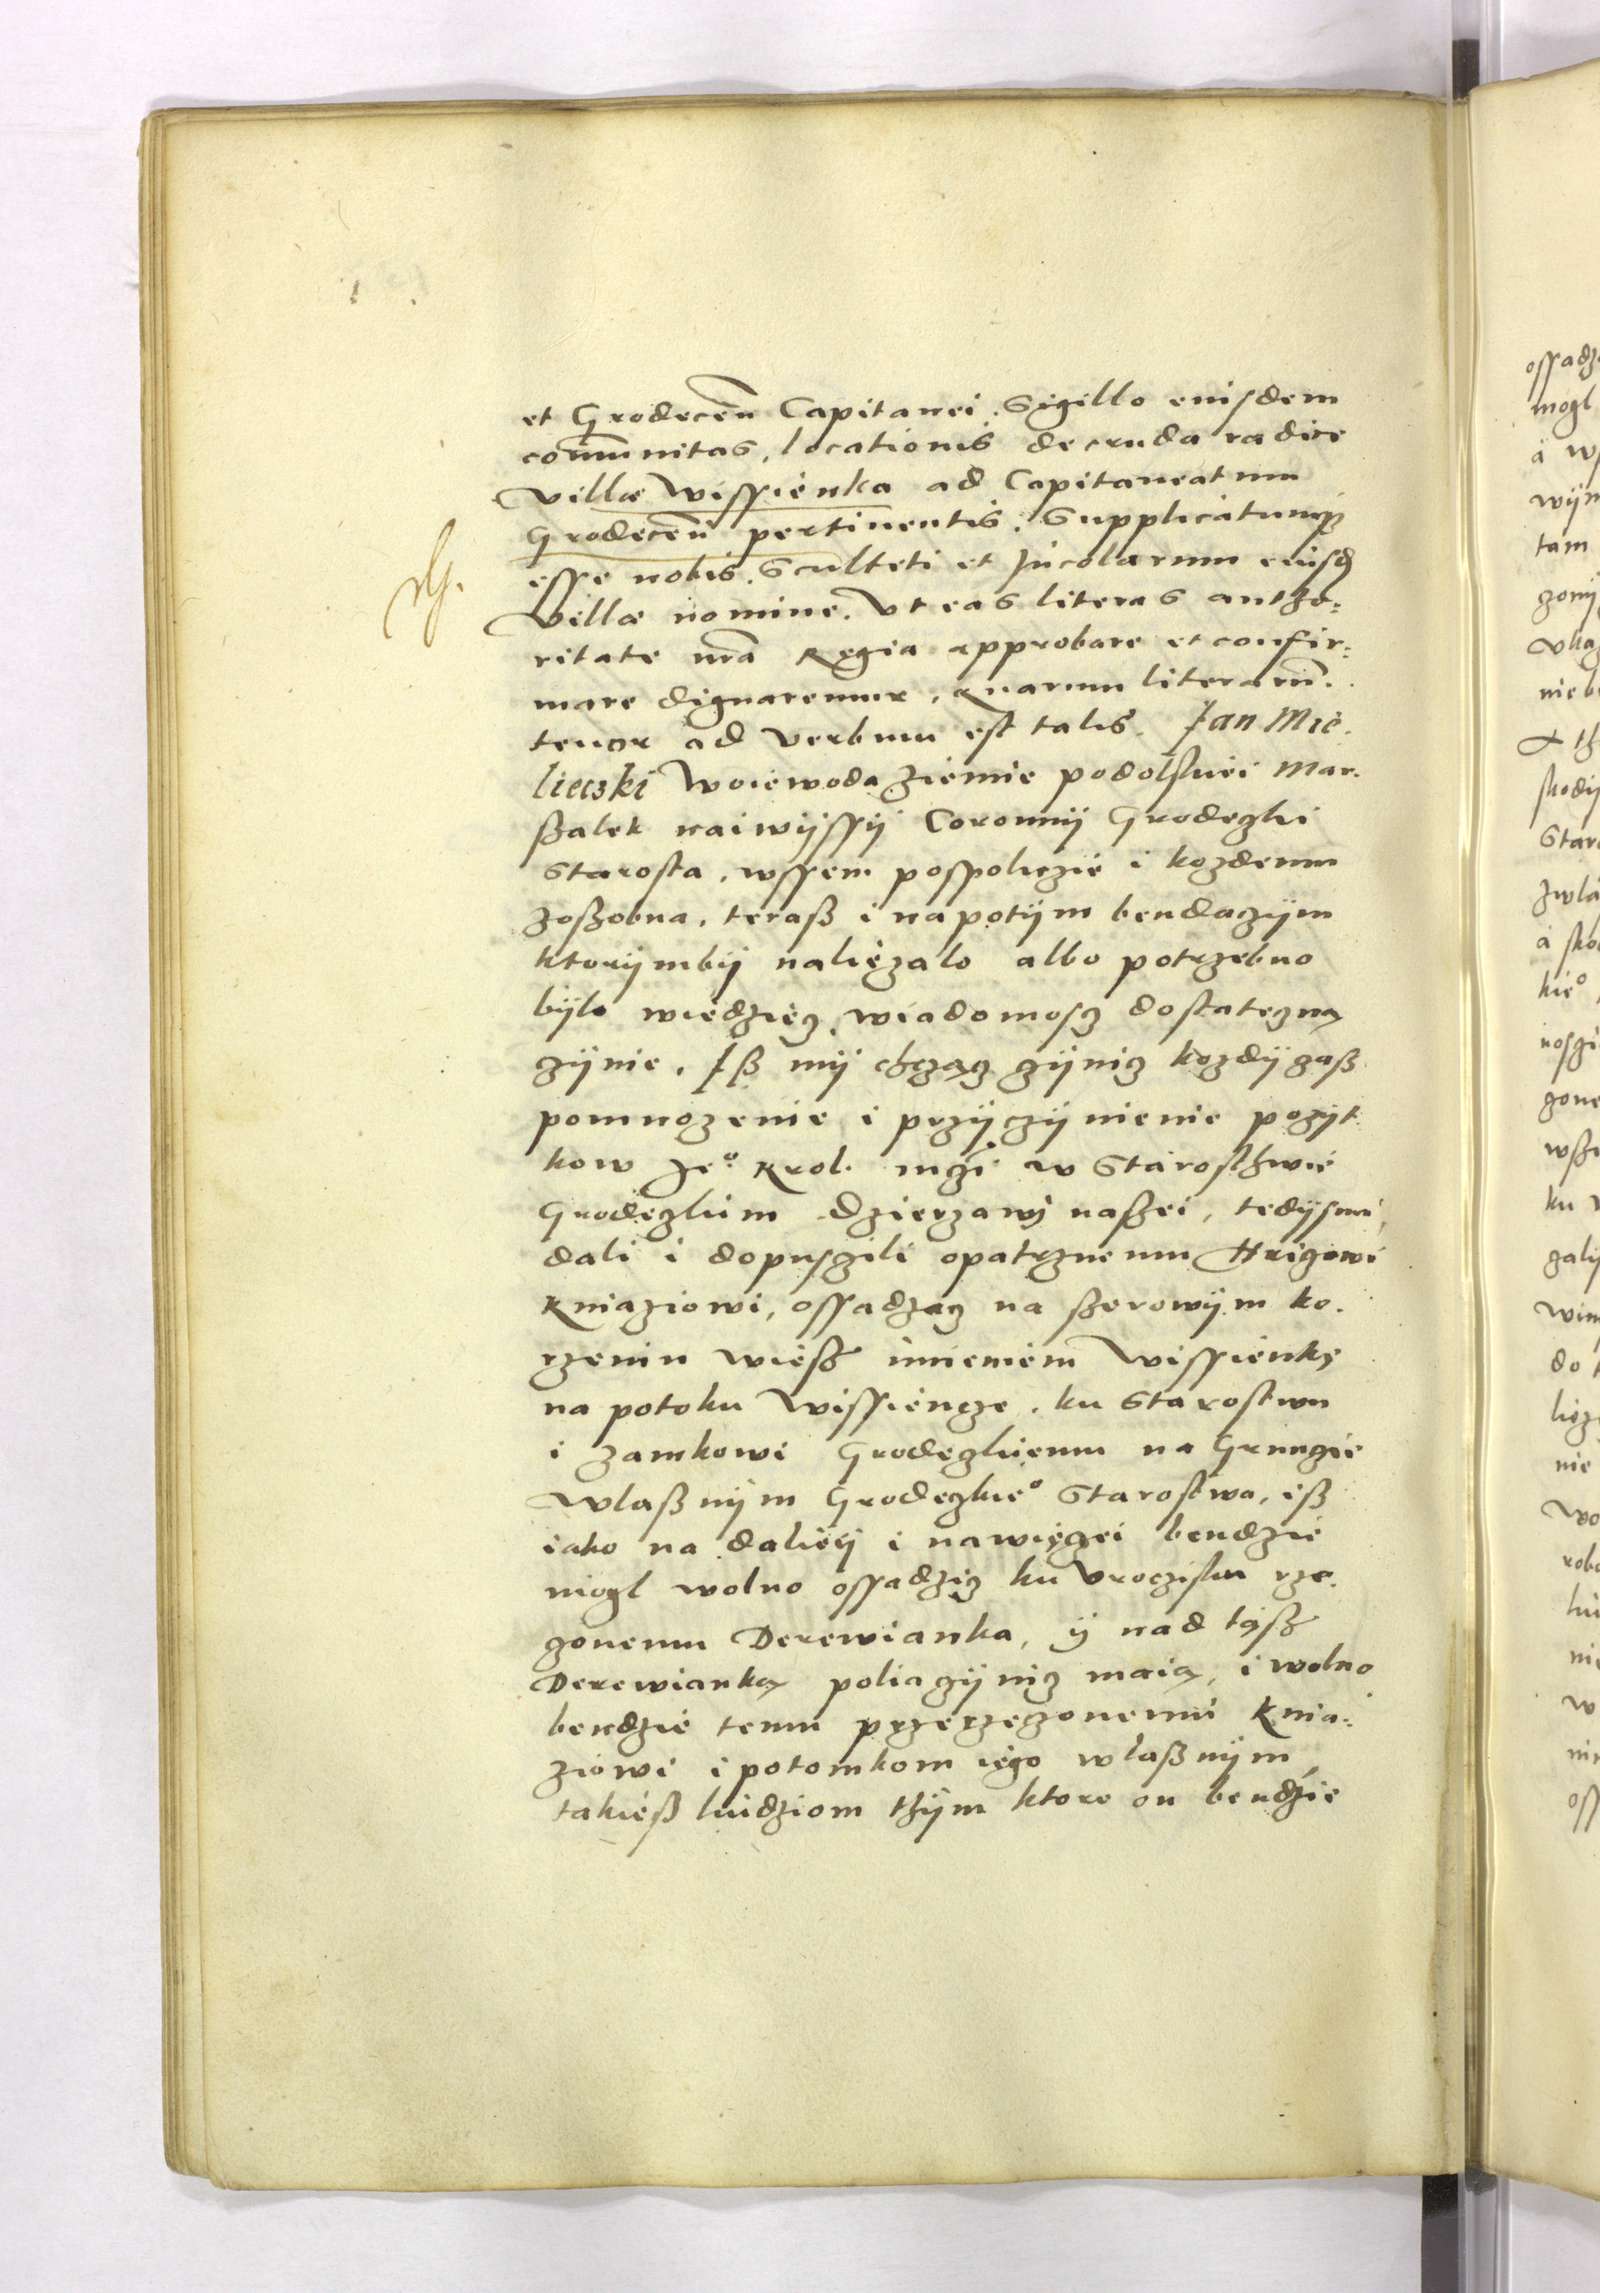 et Grodecen̄ Capitanei. Sigillo eiusdem
com̄unitas, locationis de cruda radice
villæ Wissienka ad Capitaneatum
Grodecen̄ pertinentis. Supplicatumq3
esse nobis. Sculteti et Incolarum eiusd
villæ nomine. Vt eas literas autho=
ritate nr̄a Regia approbare et confir=
mare dignaremur, quarum literarū.
tenor ad verbum est talis. Jan Mie.
lieczki Woiewoda ziemie podolskiei Mar.
ßalek naiwyssÿ Coronnÿ Grodeczki
Starosta, wssem pospoliczie i kozdemu
zoßobna, teraß i napotÿm bendaczÿm
ktorÿmbÿ nalięzalo albo potrzebno
bÿlo wiedzięcz, wiadomoscz dostateczną
czÿnie. Iß mÿ chcząncz czÿnicz kozdÿ czaß
pomnozenie i przÿczÿnienie pozÿt
kow Je° Krol. mczi w Starosthwie
Grodeczkim dzierzawÿ naßei, tedÿsmi
dali i dopusczili opatrznemu Hriczowi
Kniaziowi, ossadzacz na ßerowÿm ko.
rzeniu wieß imieniem Wissienkę
na potoku Wissiencze. ku Starostwu
i zamkowi Grodeczkiemu na Grunczie
Wlaßnÿm Grodeczkie° Starostwa, iß
iako na daliëÿ i nawięczei bendzie
mogl wolno ossadzicz ku Vrocziskiu rze.
czonemu Derewianka, ÿ nad tąß
Derewianką polia czÿnicz maią, i wolno
bendzie temu przerzeczonemu Knia=
ziowi i potomkom iego wlaßnÿm,
takieß luidziom thÿm ktore on bendzie
ossadz
mogl
à ws
wÿn
tam
zonÿ
Vka
nie b
th
skodÿ
Star
zwla
à sko
kie°
noszi
gone
wßi
ku
galÿ
win
do
licz
nie
wo
rob
lui
ni
w
nie
oss